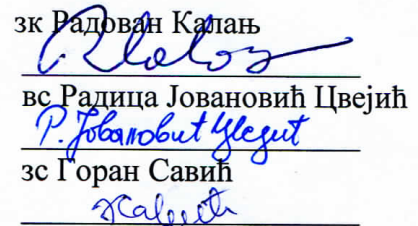 зк Радован Калањ
вс Радица Јовановић Цвејић
Р. Јовановић Цвејић
зс Горан Савић